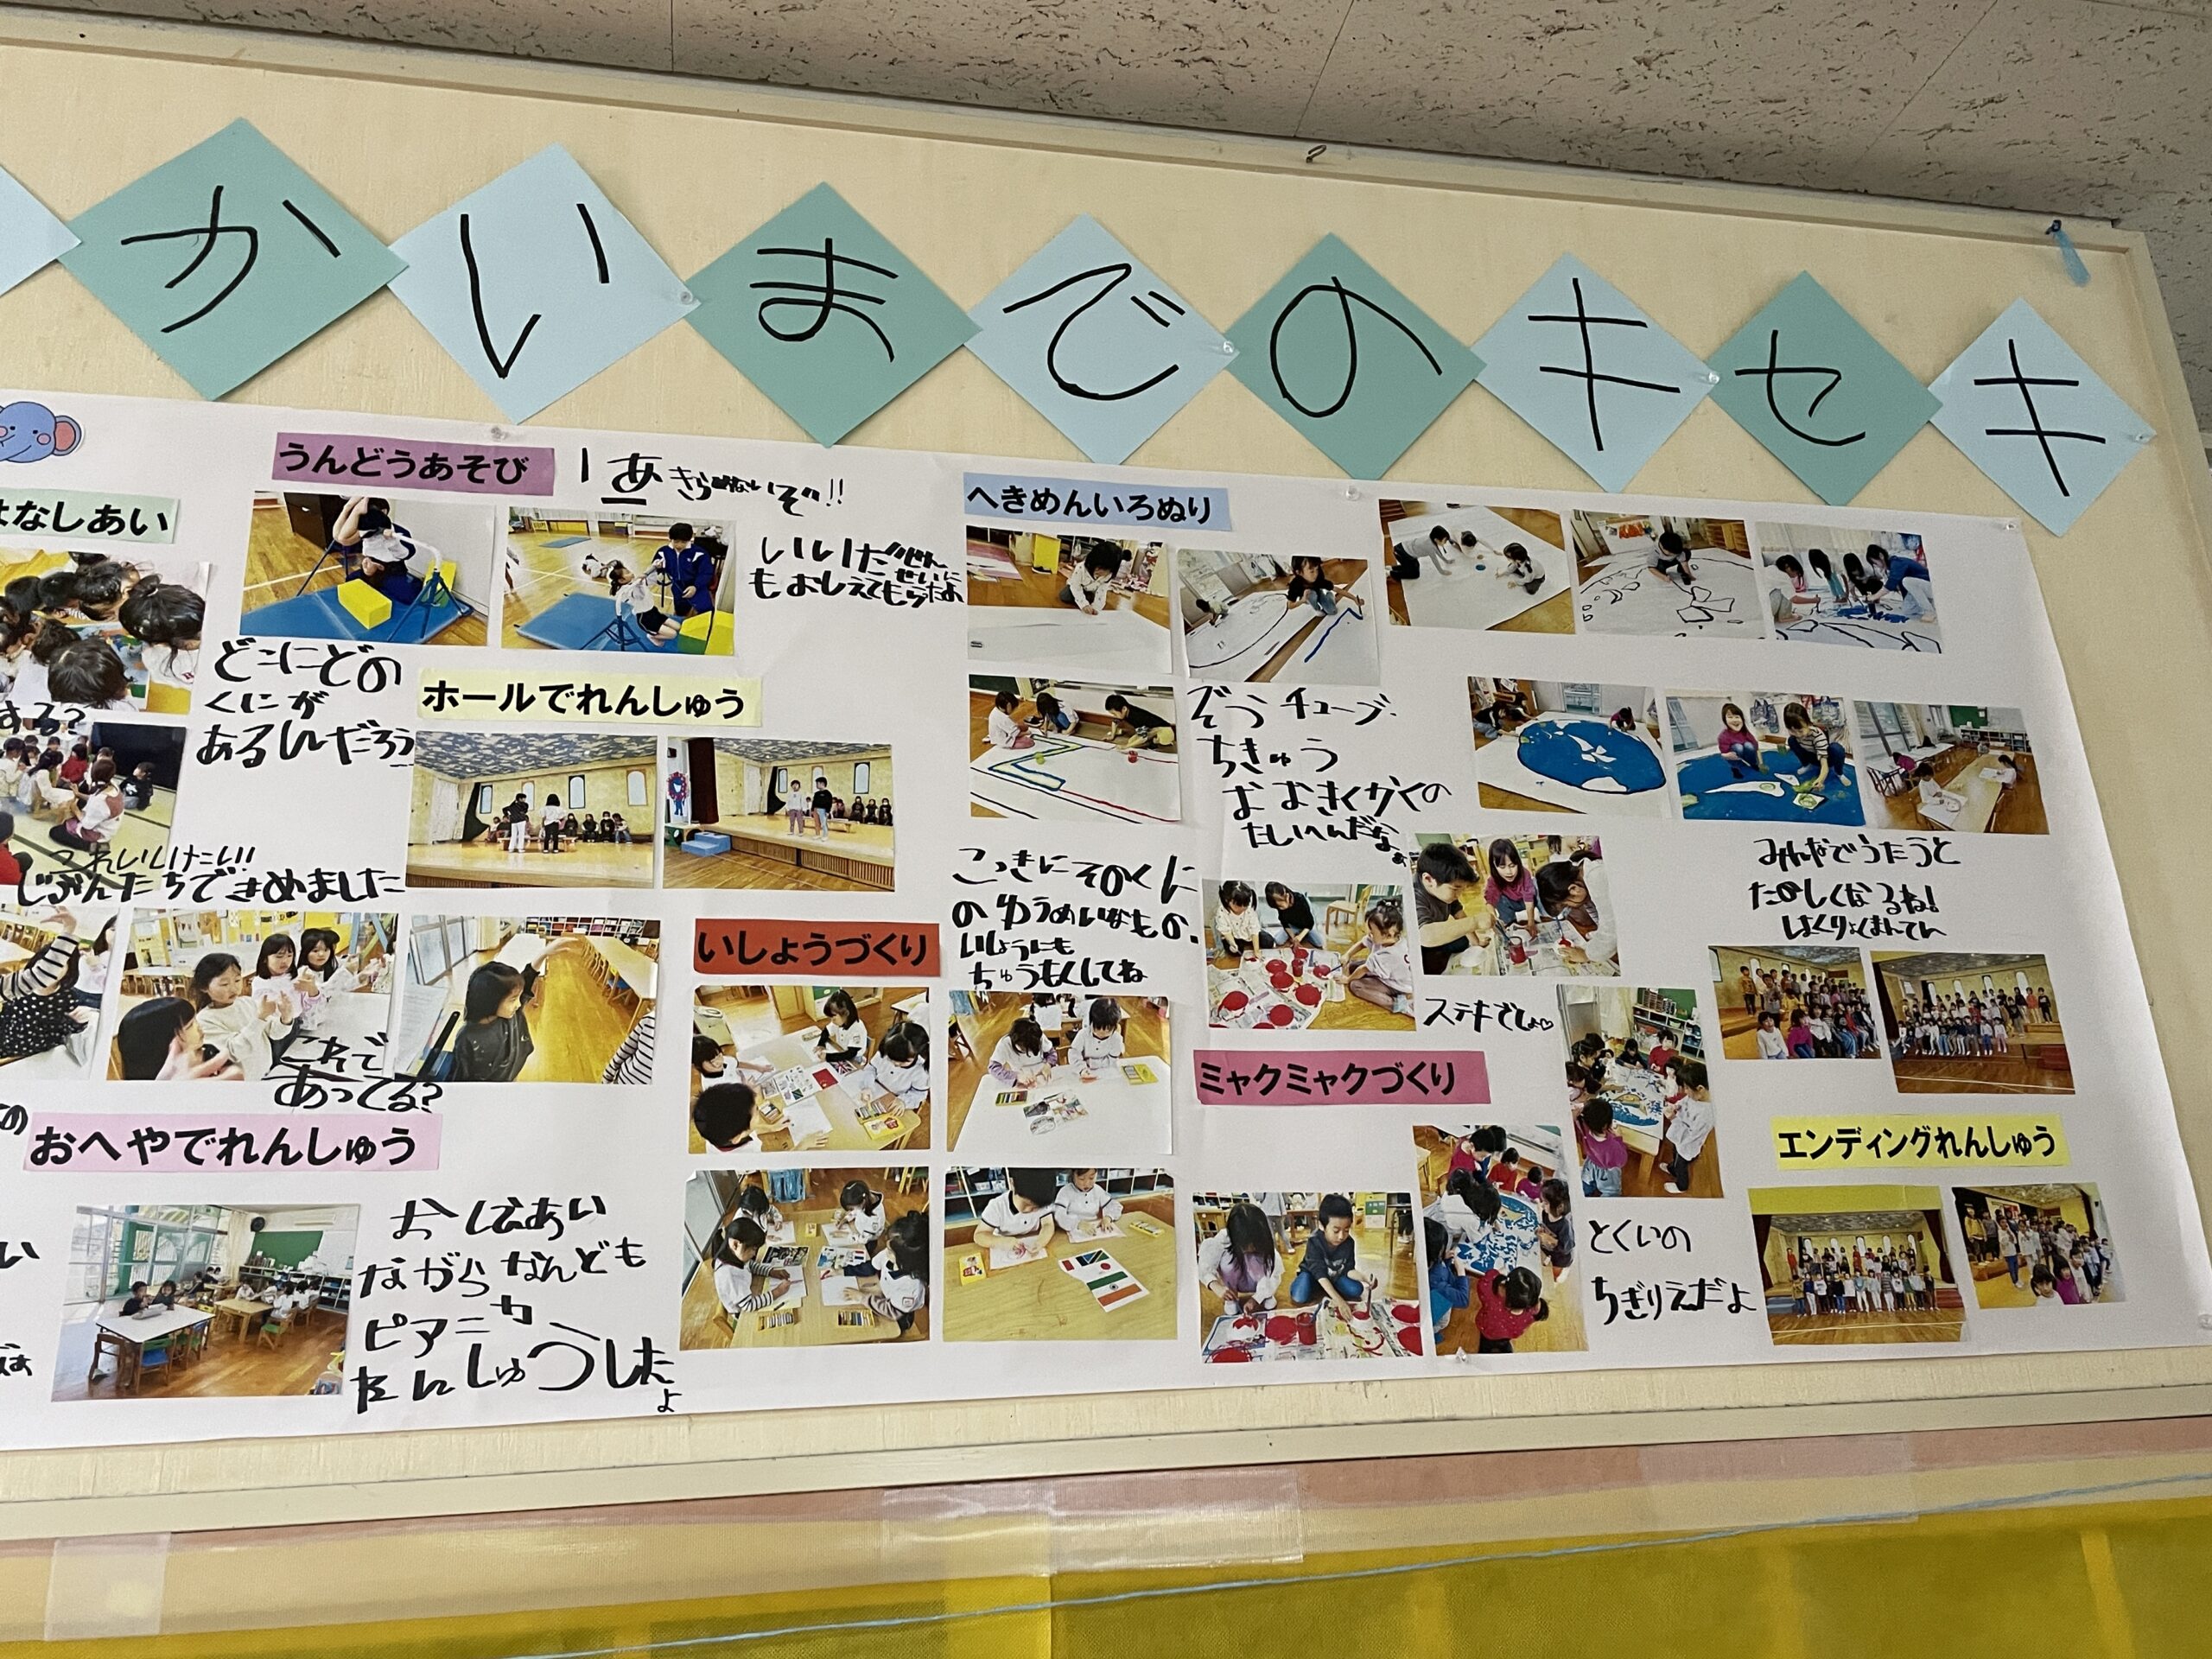 かいまでのキセキ
うんどうあそび
あきらめないぞ!!
いいだぜんせいに
もおしえてもらったよ
へきめんいろぬり
はなしあい
どこにどの
くにが
あるんだろう
する?
ホールでれんしゅう
ぞうチューブ
ちきゅう
おおきくかくの
たいへんだなぁ
これいいけたい!!
じぶんたちできめました
こっきにそのくに
のゆうめいなもの.
いしょうにも
ちゅうもくしてね
みんなでうたうと
たのしくなるね!
はくりょくまんてん
いしょうづくり
ステキでしょ♡
これで
あってる?
ミャクミャクづくり
おへやでれんしゅう
エンディングれんしゅう
おしえあい
ながらなんども
ピアニカ
れんしゅうしたよ
とくいの
ちぎりえだよ